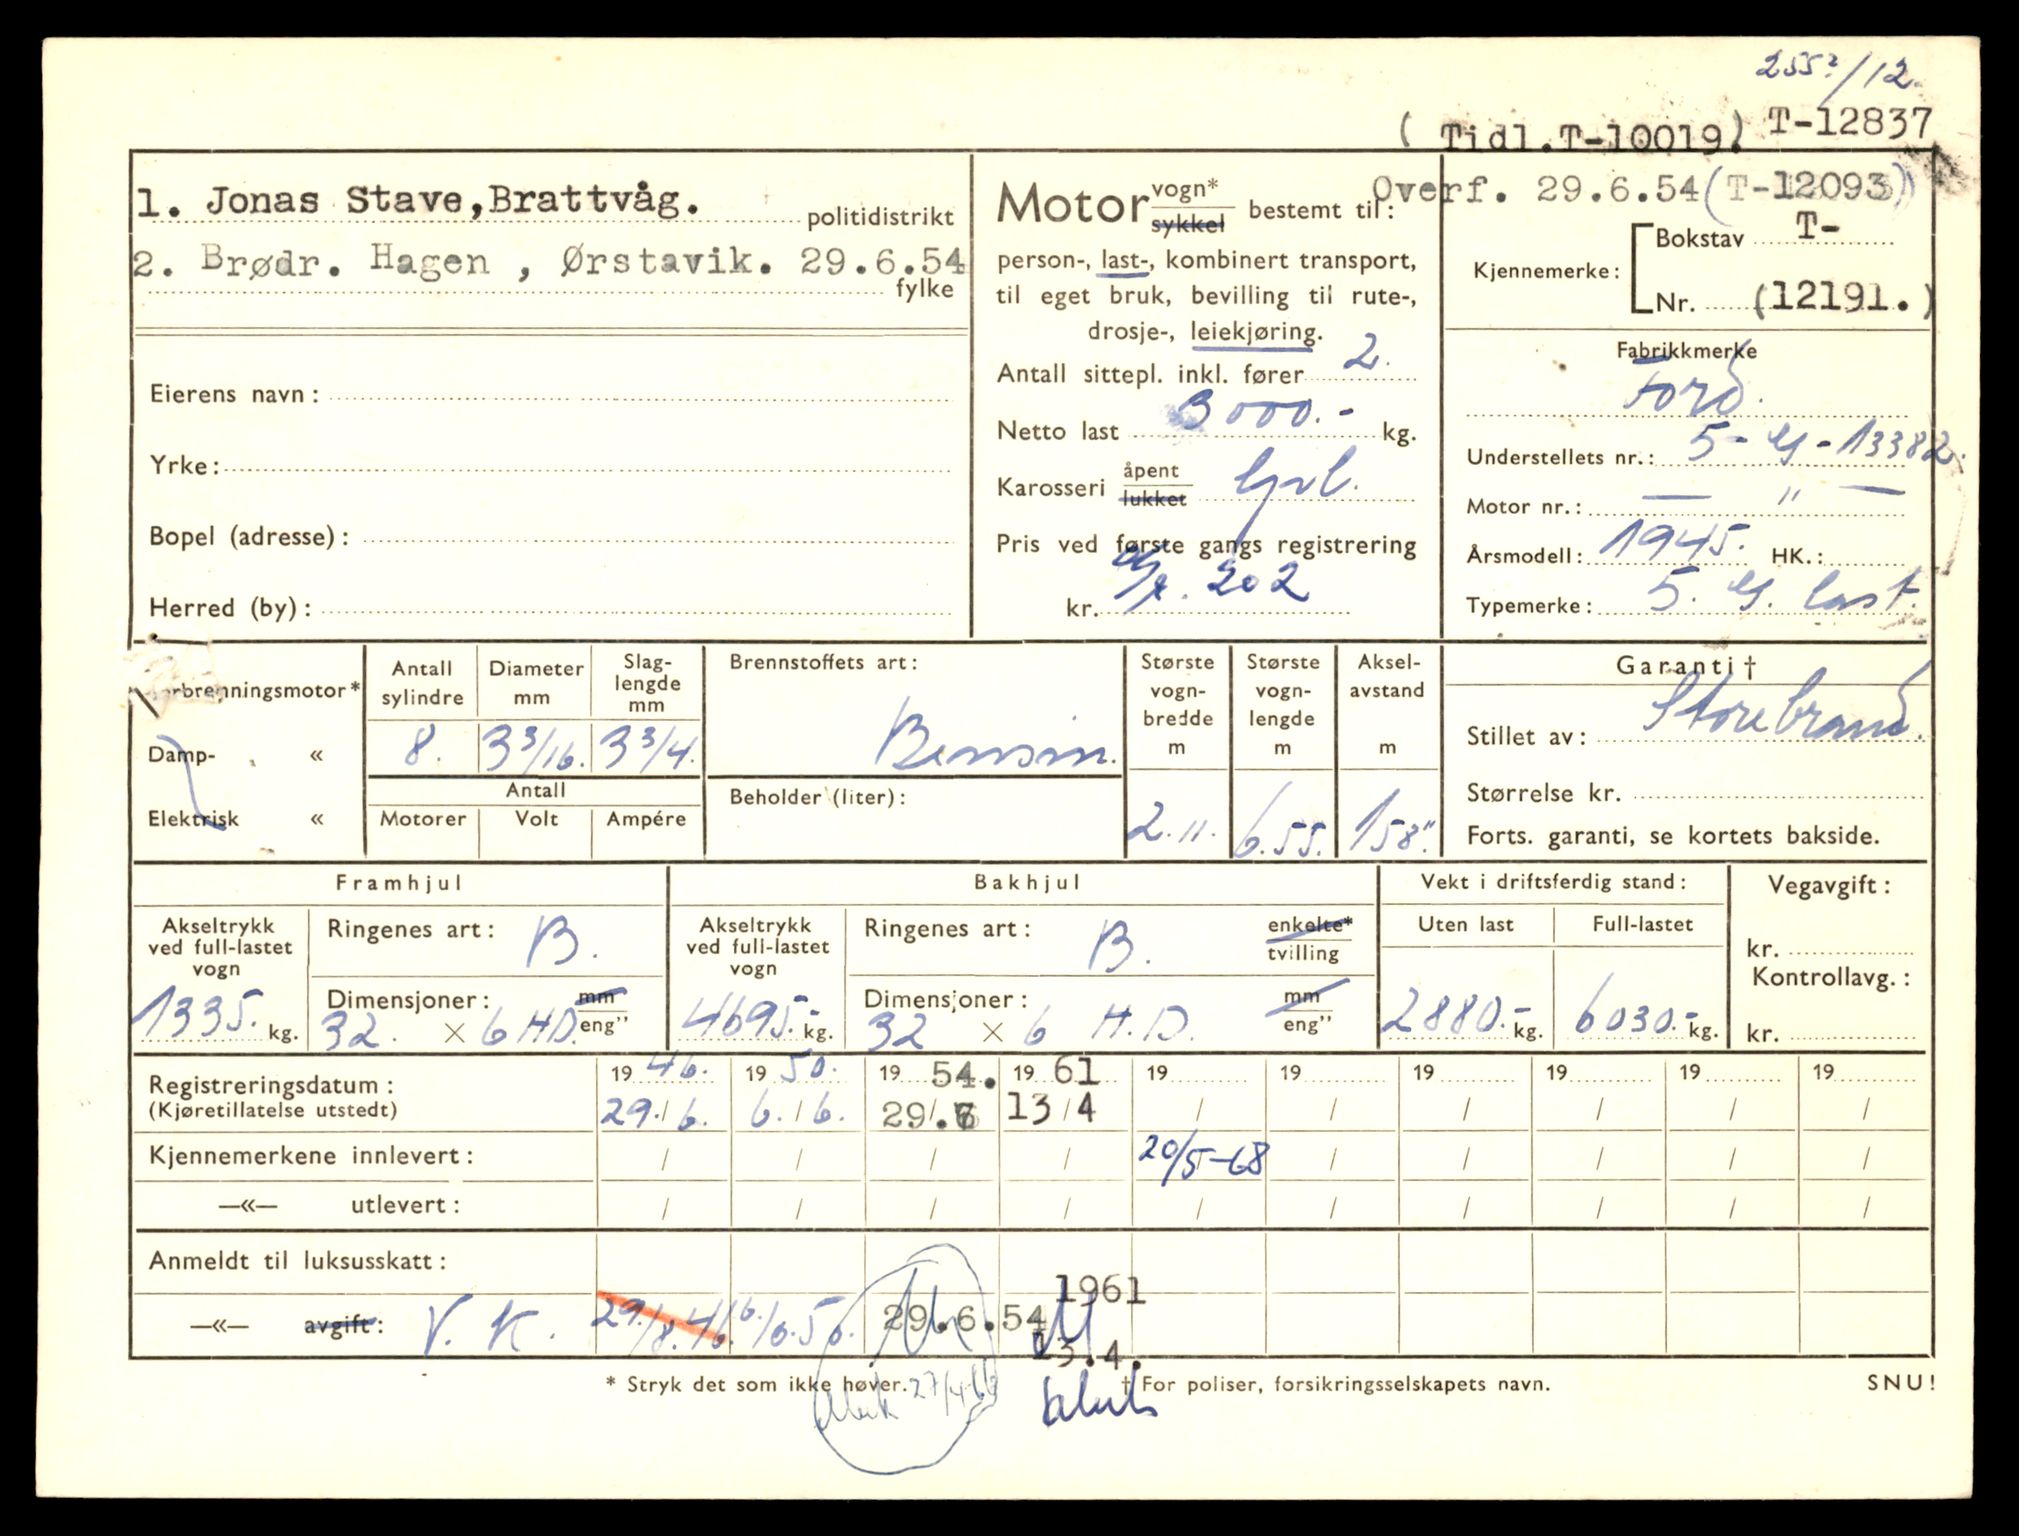 255²/12.
( Tidl.T-10019) T-12837
1. Jonas Stave,Brattvåg. politidistrikt
2. Brødr. Hagen , Ørstavik. 29.6.54
fylke
Eierens navn :
Yrke :
Bopel (adresse) :
Herred (by) :
Motor vogn* sykkel bestemt til :
person-, last-, kombinert transport,
til eget bruk, bevilling til rute-,
drosje-, leiekjøring.
Antall sittepl. inkl. fører 2.
Netto last 3000.- kg.
Karosseri åpent lukket
Pris ved første gangs registrering
kr. 202
Overf. 29.6.54 (T-12093)
Kjennemerke : Bokstav T-
Nr. (12191.)
Fabrikkmerke
Ford.
Understellets nr. : 5-G-13382.
Motor nr. : — " —
Årsmodell : 1945. HK. :
Typemerke : 5. G. last.
Forbrenningsmotor *
Damp- «
Elektrisk «
Antall sylindre
8.
Diameter mm
3 3/16.
Slag-lengde mm
3 3/4.
Antall
Motorer Volt Ampére
Brennstoffets art :
Bensin.
Beholder (liter) :
Største vogn-bredde m
2.11.
Største vogn-lengde m
6.55.
Aksel-avstand m
158".
Garanti †
Stillet av : Storebrand.
Størrelse kr.
Forts. garanti, se kortets bakside.
Framhjul
Akseltrykk ved full-lastet vogn
1335.- kg.
Ringenes art : B.
Dimensjoner : mm eng"
32. × 6 HD.
Bakhjul
Akseltrykk ved full-lastet vogn
4695.- kg.
Ringenes art : B. enkelte* tvilling
Dimensjoner : mm eng"
32 × 6 H.D.
Vekt i driftsferdig stand :
Uten last
2880.- kg.
Full-lastet
6030.- kg.
Vegavgift :
kr.
Kontrollavg. :
kr.
Registreringsdatum : 19 46. 19 50. 19 54. 19 61 19 19 19 19 19 19
(Kjøretillatelse utstedt) 29./6. 6./6. 29/.6 13/4 / / / / / /
Kjennemerkene innlevert : / / / / 20/5-68 / / / / /
—«— utlevert : / / / / / / / / / /
Anmeldt til luksusskatt :
—«— avgift : V. K. 29./8.46. 6./6.50. 29.6.54 1961
13.4.
27/4-66
* Stryk det som ikke høver. † For poliser, forsikringsselskapets navn. SNU!